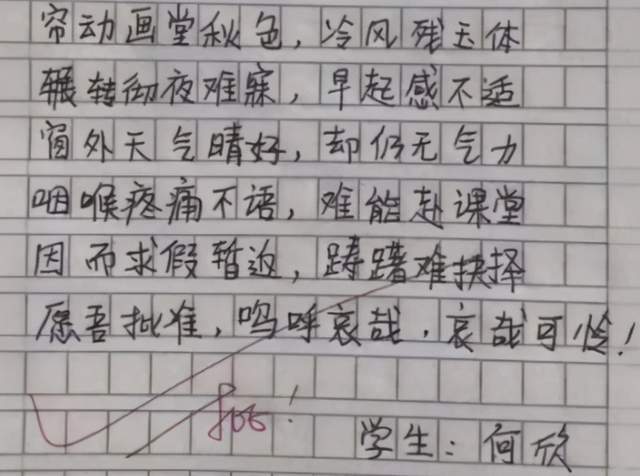 帘动画堂秋色，冷风残玉体
辗转彻夜难寐，早起感不适
窗外天气晴好，却仍无气力
咽喉疼痛不语，难能赴课堂
因而求假暂返，踌躇难抉择
愿吾批准，呜呼哀哉，哀哉可怜！
学生：何欣